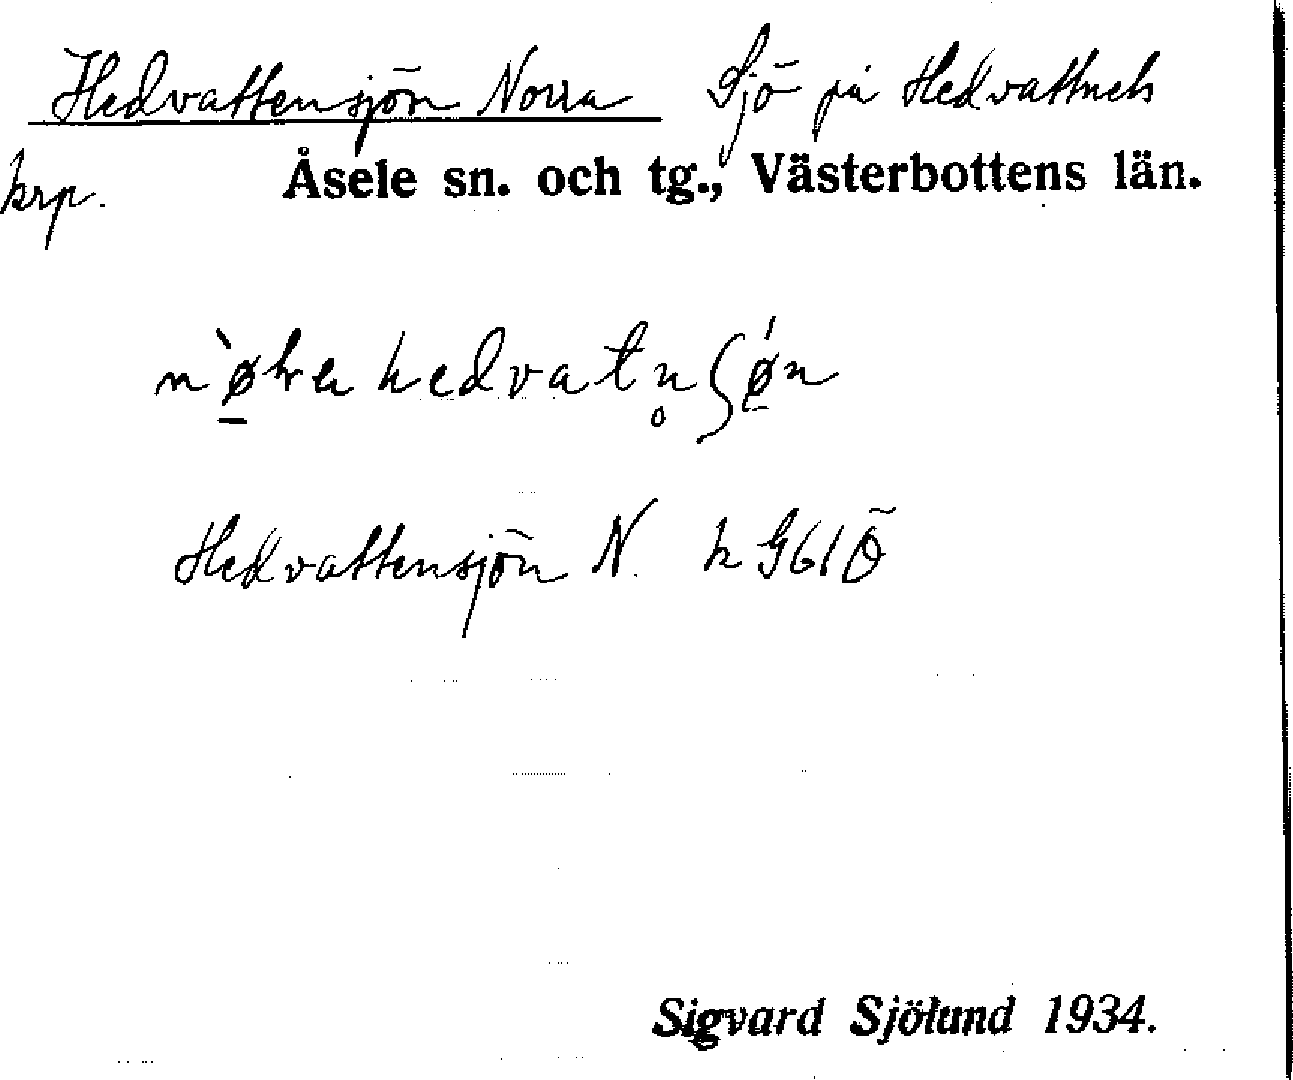 Hedvattensjön Norra Sjö på Hedvattnets
krp. Åsele sn. och tg., Västerbottens län.
hedvatn̥ʃǿ̠n
Hedvattensjön N. k G61Ö
Sigvard Sjölund 1934.